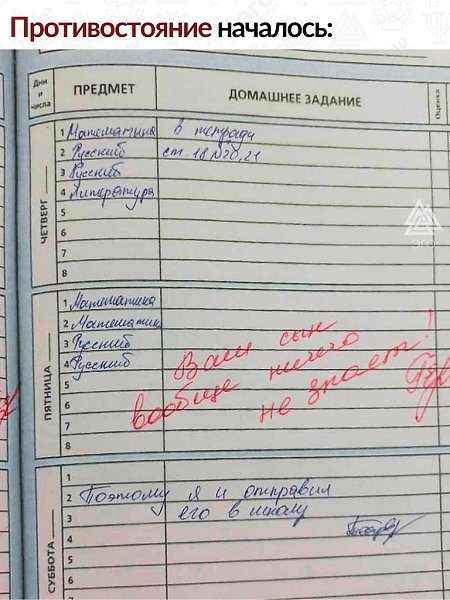 Противостояние началось:
Дни и числа ПРЕДМЕТ ДОМАШНЕЕ ЗАДАНИЕ Оценка
ЧЕТВЕРГ
1 Математика в тетради
2 Русский ст. 18 №20,21
3 Русский
4 Литература
5
6
7
8
ЭГО
ПЯТНИЦА
1 Математика
2 Математика
3 Русский
4 Русский
5
6
7
8
Ваш сын
вообще ничего
не знает!
СУББОТА
1
2 Поэтому я и отправил
3 его в школу
4
5